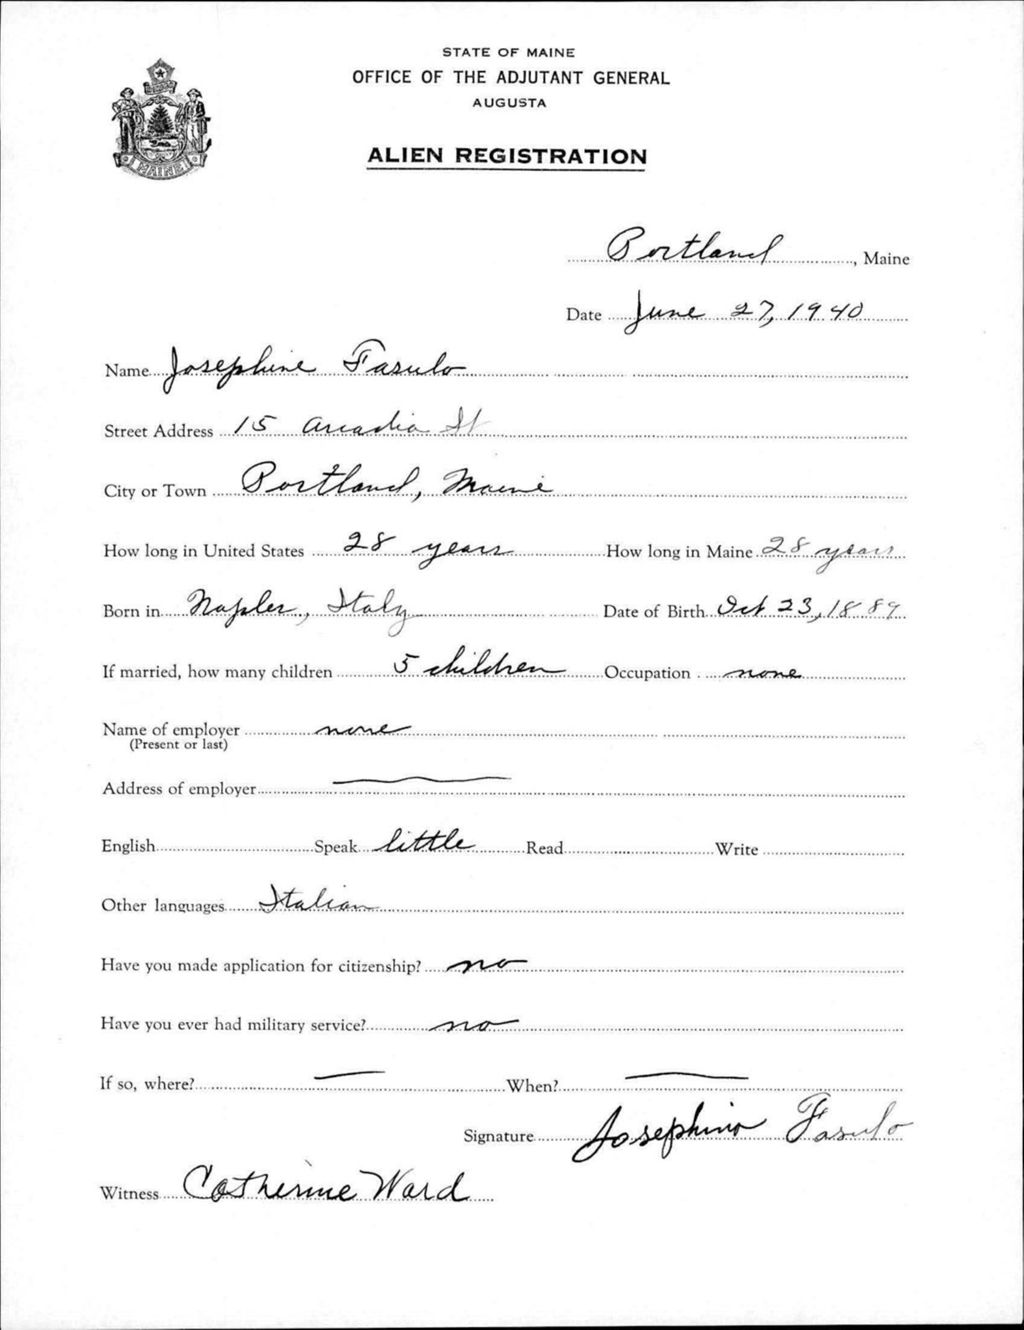 STATE OF MAINE
OFFICE OF THE ADJUTANT GENERAL
AUGUSTA
ALIEN REGISTRATION
MAINE
Portland, Maine
Date June 27, 1940
Name Josephine Fasulo
Street Address 15 Arcadia St
City or Town Portland, Maine
How long in United States 28 years How long in Maine 28 years
Born in Naples, Italy Date of Birth Oct 23, 1889
If married, how many children 5 children Occupation none
Name of employer none
(Present or last)
Address of employer
English Speak little Read Write
Other languages Italian
Have you made application for citizenship? no
Have you ever had military service? no
If so, where? When?
Signature Josephine Fasulo
Witness Catherine Ward